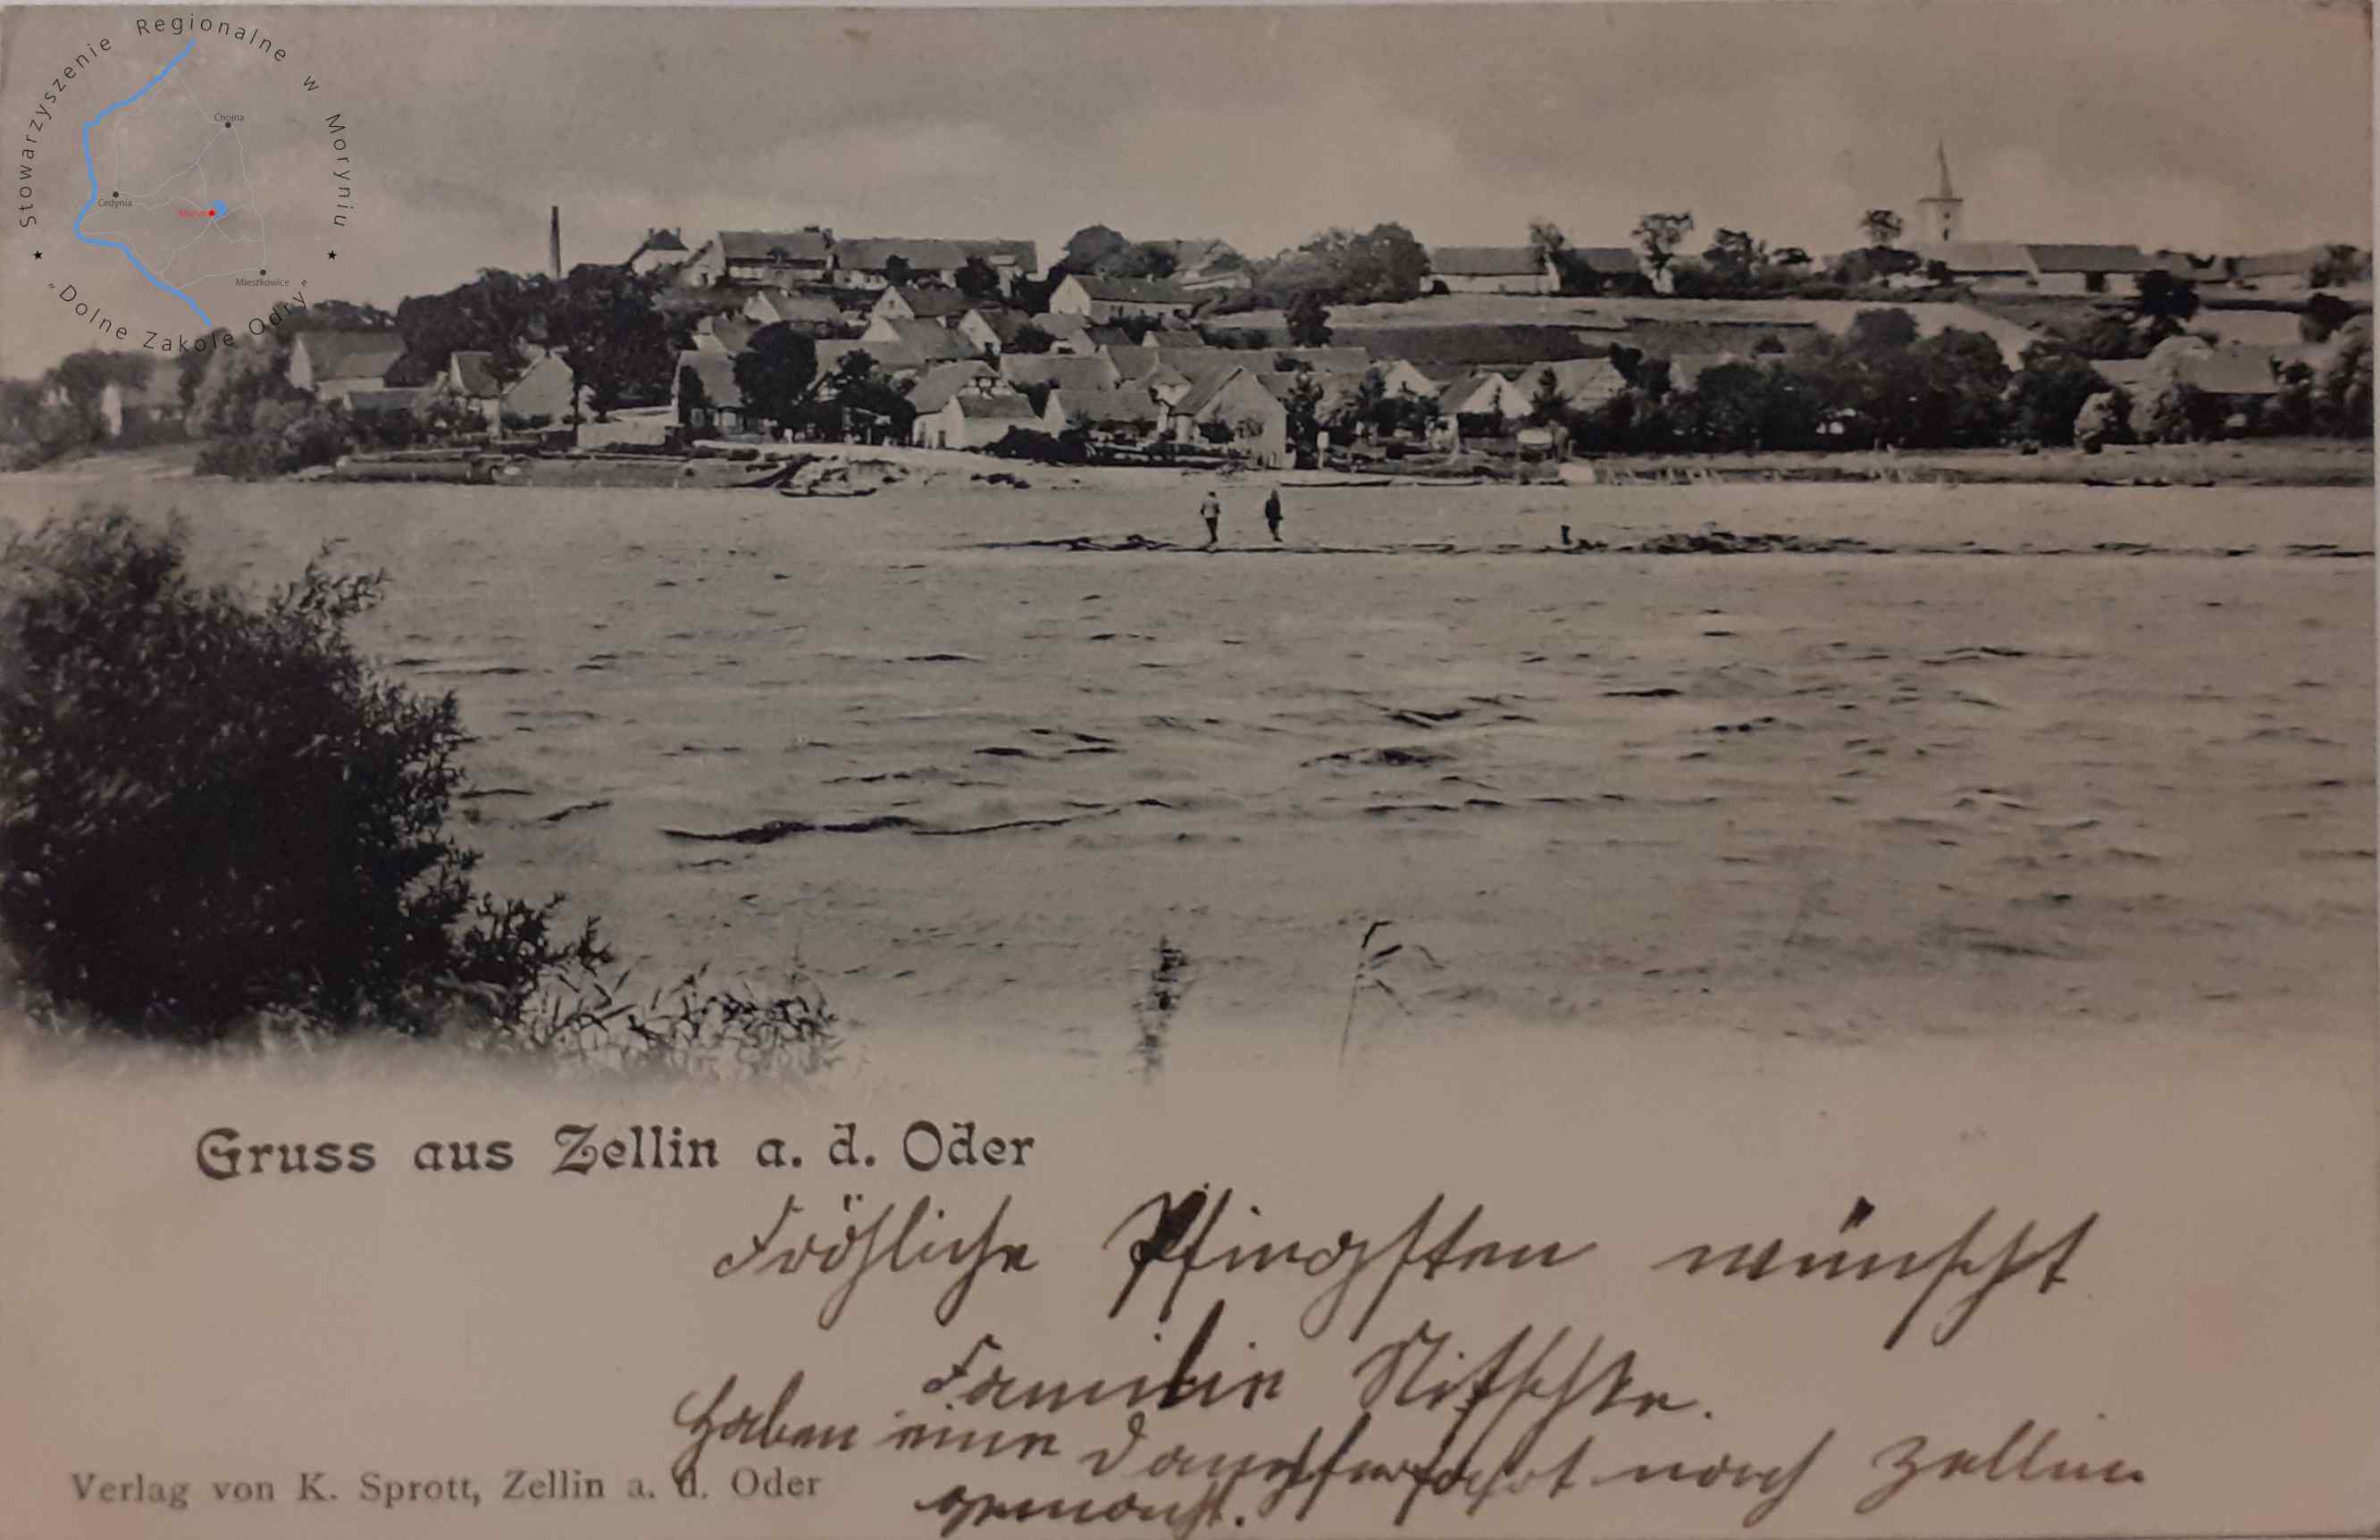 Stowarzyszenie Regionalne w Moryniu
"Dolne Zakole Odry"
Chojna
Cedynia
Moryń
Mieszkowice
Gruss aus Zellin a. d. Oder
Fröhliche Pfingsten wünscht
Familie Nitschke.
Haben eine Dampferfahrt nach Zellin
gemacht.
Verlag von K. Sprott, Zellin a. d. Oder